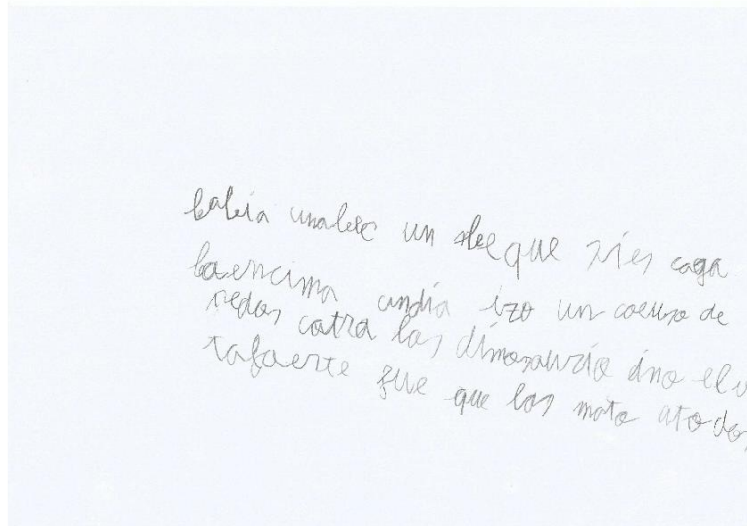 babia unabec un que sies caga
baencima undia izo un coeurso de
pedos catra los dimosaurio ino el
tafuerte fue que los mato atodos